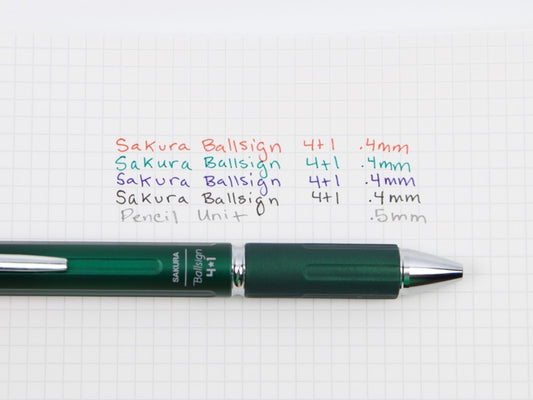 Sakura Ballsign 4+1 .4mm
Sakura Ballsign 4+1 .4mm
Sakura Ballsign 4+1 .4mm
Sakura Ballsign 4+1 .4mm
Pencil Unit .5mm
SAKURA
Ballsign
4*1